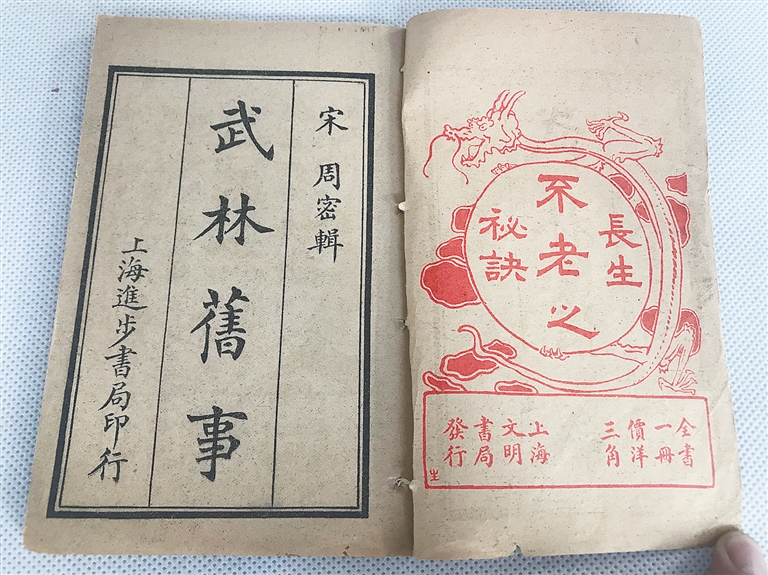 長生
不老之
秘訣
全書
一冊
價洋
三角
上海
文明
書局
發行
生
宋 周密輯
武林舊事
上海進步書局印行